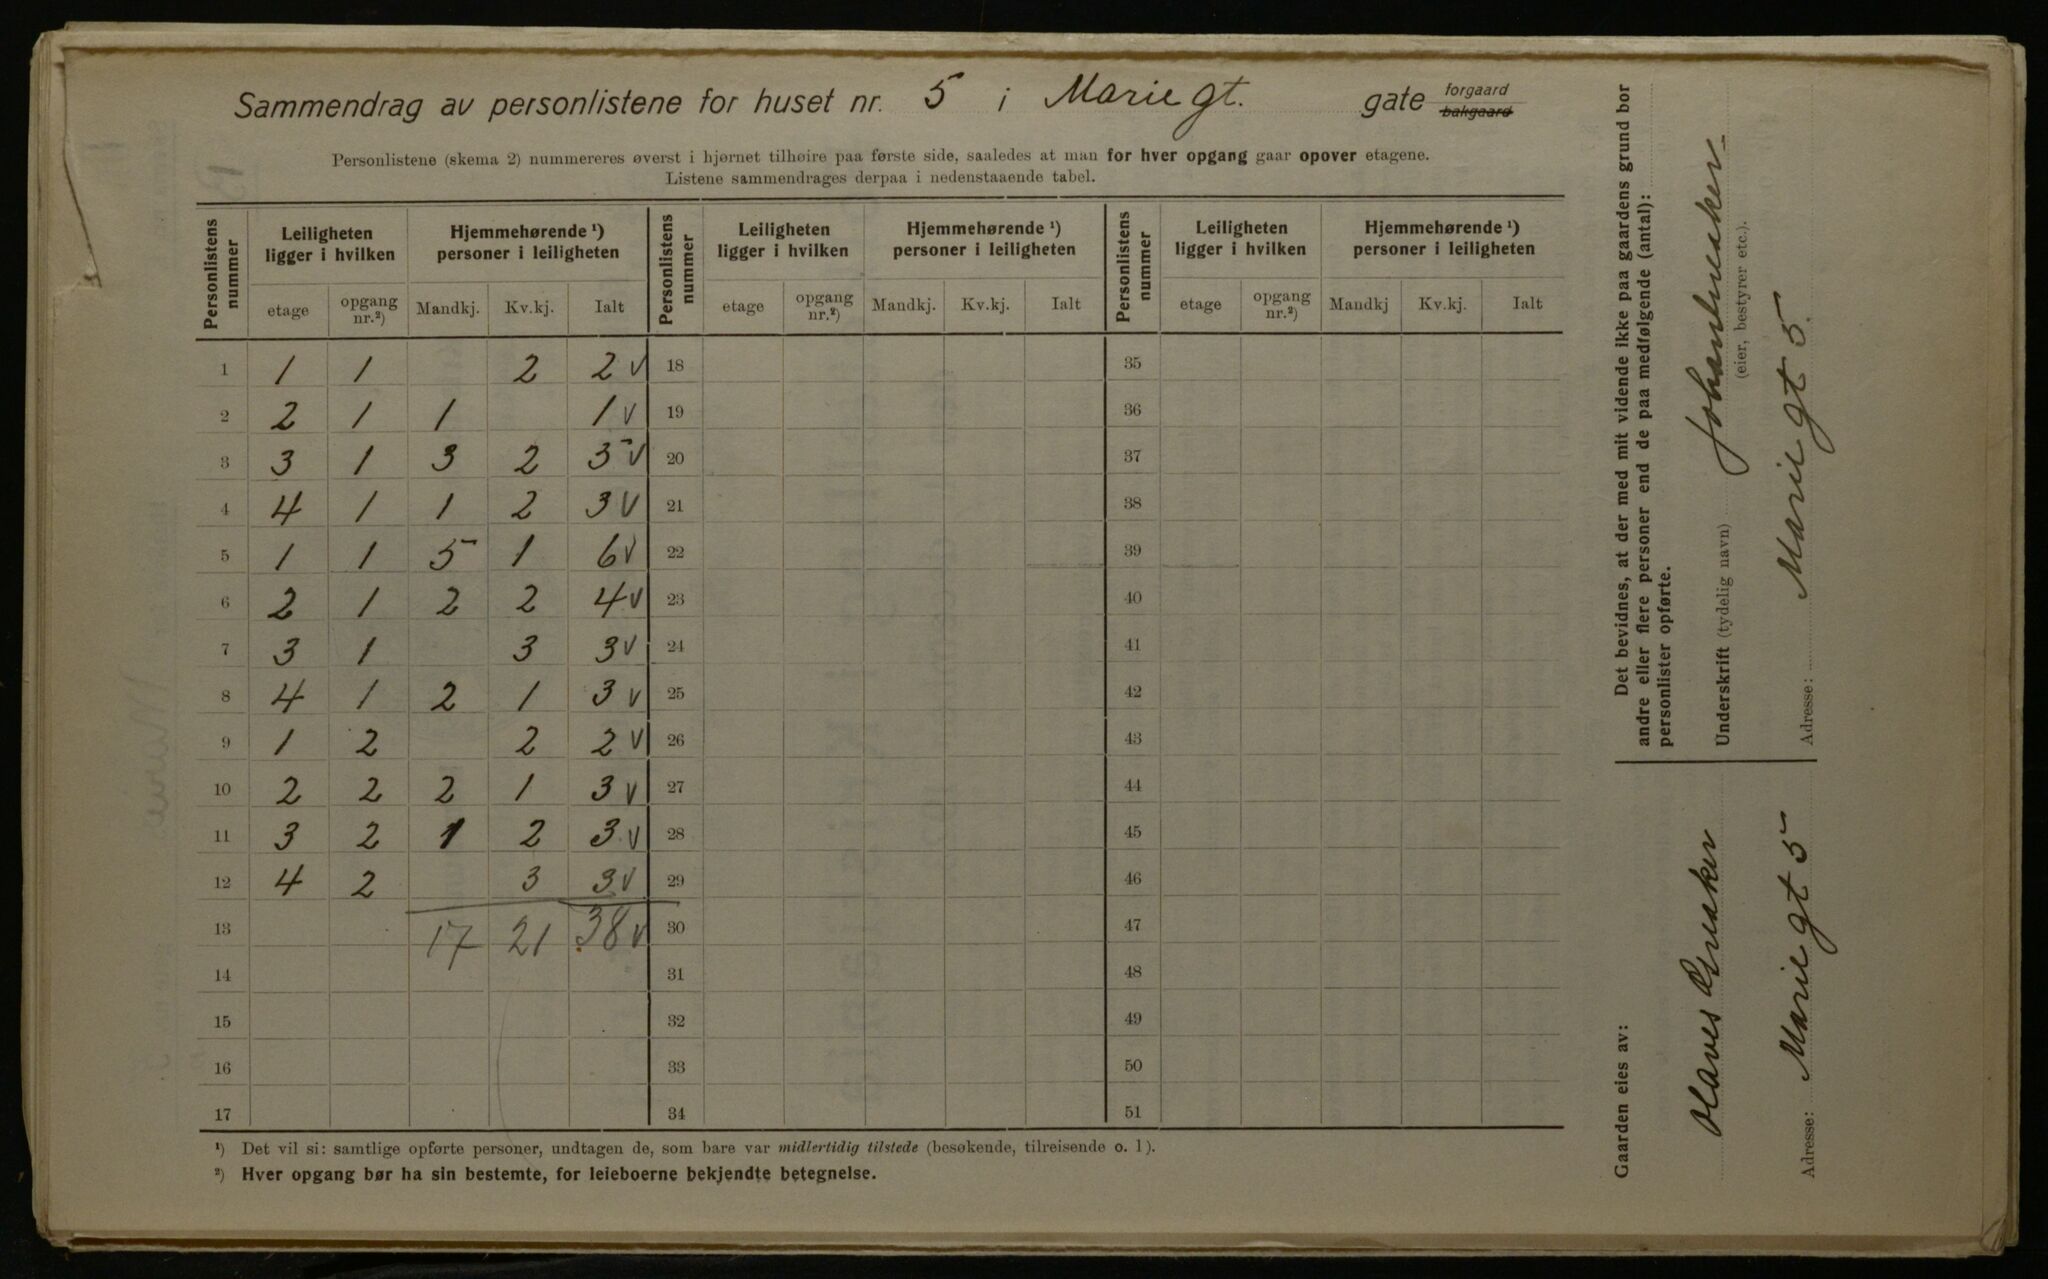 Sammendrag av personlistene for huset nr. 5 i Marie gt. gate forgaard bakgaard
Personlistene (skema 2) nummereres øverst i hjørnet tilhøire paa første side, saaledes at man for hver opgang gaar opover etagene.
Listene sammendrages derpaa i nedenstaaende tabel.
Personlistens nummer | Leiligheten ligger i hvilken | Hjemmehørende ¹) personer i leiligheten | Personlistens nummer | Leiligheten ligger i hvilken | Hjemmehørende ¹) personer i leiligheten | Personlistens nummer | Leiligheten ligger i hvilken | Hjemmehørende ¹) personer i leiligheten
etage | opgang nr.²) | Mandkj. | Kv.kj. | Ialt | etage | opgang nr.²) | Mandkj. | Kv.kj. | Ialt | etage | opgang nr.²) | Mandkj | Kv.kj. | Ialt
1 | 1 | 1 | | 2 | 2 v | 18 | 35
2 | 2 | 1 | 1 | | 1 v | 19 | 36
3 | 3 | 1 | 3 | 2 | 5 v | 20 | 37
4 | 4 | 1 | 1 | 2 | 3 v | 21 | 38
5 | 1 | 1 | 5 | 1 | 6 v | 22 | 39
6 | 2 | 1 | 2 | 2 | 4 v | 23 | 40
7 | 3 | 1 | | 3 | 3 v | 24 | 41
8 | 4 | 1 | 2 | 1 | 3 v | 25 | 42
9 | 1 | 2 | | 2 | 2 v | 26 | 43
10 | 2 | 2 | 2 | 1 | 3 v | 27 | 44
11 | 3 | 2 | 1 | 2 | 3 v | 28 | 45
12 | 4 | 2 | | 3 | 3 v | 29 | 46
13 | | | 17 | 21 | 38 v | 30 | 47
14 | 31 | 48
15 | 32 | 49
16 | 33 | 50
17 | 34 | 51
¹) Det vil si: samtlige opførte personer, undtagen de, som bare var midlertidig tilstede (besøkende, tilreisende o. l).
²) Hver opgang bør ha sin bestemte, for leieboerne bekjendte betegnelse.
Det bevidnes, at der med mit vidende ikke paa gaardens grund bor
andre eller flere personer end de paa medfølgende (antal):
personlister opførte.
Underskrift (tydelig navn)
(eier, bestyrer etc.).
Adresse: Marie gt 5.
Gaarden eies av:
Olaves
Adresse: Marie gt 5